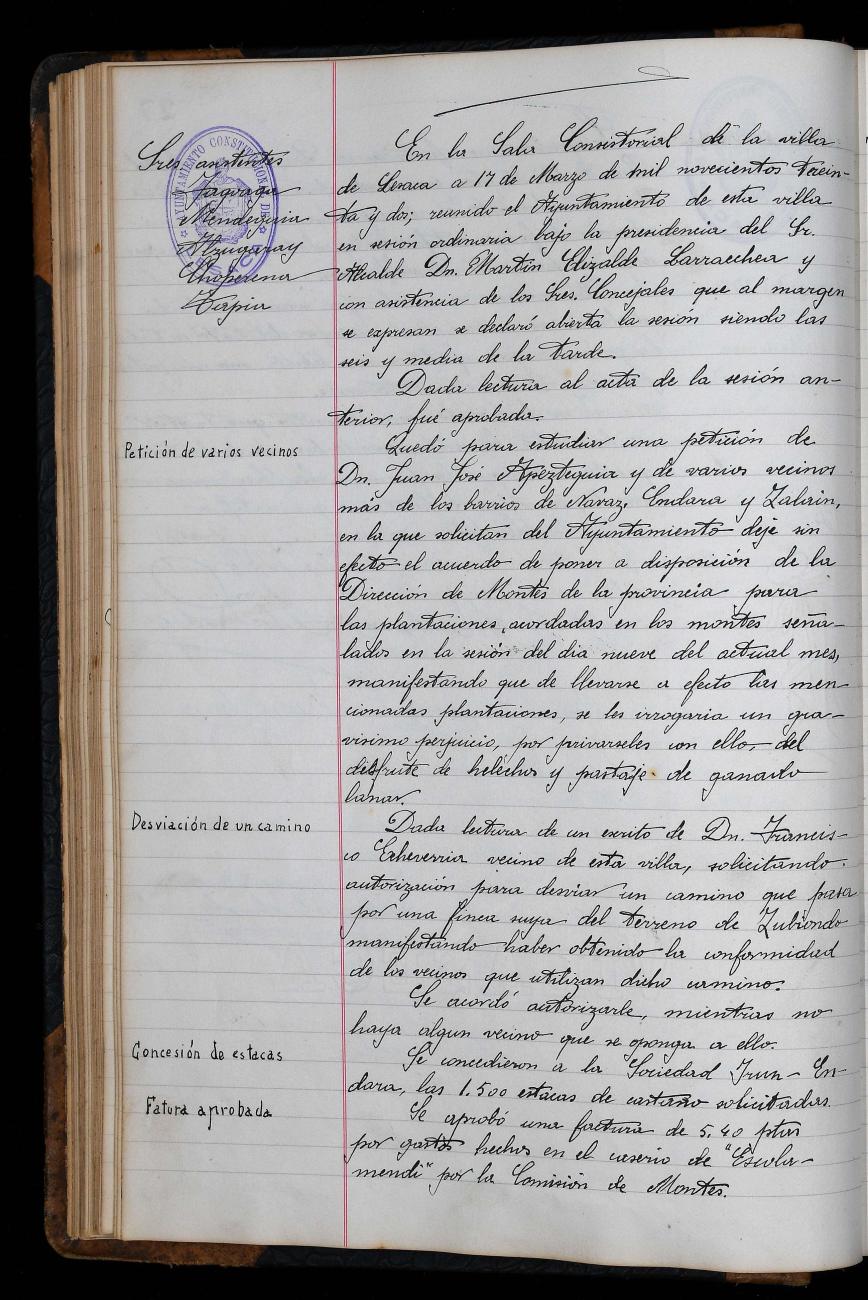 Sres. asistentes
Mendiguia
Alzugaray
Choperena
Tapia
AYUNTAMIENTO CONSTITUCIONAL DE LESACA
En la Sala Consistorial de la villa
de Lesaca a 17 de Marzo de mil novecientos trein-
ta y dos; reunido el Ayuntamiento de esta villa
en sesión ordinaria bajo la presidencia del Sr.
Alcalde Dn. Martín Elizalde Larraechea y
con asistencia de los Sres. Concejales que al margen
se expresan se declaró abierta la sesión siendo las
seis y media de la tarde.
Dada lectura al acta de la sesión an-
terior, fué aprobada.
Petición de varios vecinos
Quedó para estudiar una petición de
Dn. Juan José Apezteguia y de varios vecinos
más de los barrios de Navaz, Endara y Zalain,
en la que solicitan del Ayuntamiento deje sin
efecto el acuerdo de poner a disposición de la
Dirección de Montes de la provincia para
las plantaciones, acordadas en los montes seña-
lados en la sesión del dia nueve del actual mes,
manifestando que de llevarse a efecto las men-
cionadas plantaciones, se les irrogaria un gra-
visimo perjuicio, por privarseles con ello, del
disfrute de helechos y pastaje de ganado
lanar.
Desviación de un camino
Dada lectura de un escrito de Dn. Francis-
co Echeverria vecino de esta villa, solicitando
autorización para desviar un camino que pasa
por una finca suya del terreno de Zubiondo
manifestando haber obtenido la conformidad
de los vecinos que utilizan dicho camino.
Se acordó autorizarle, mientras no
haya algun vecino que se oponga a ello.
Concesión de estacas
Se concedieron a la Sociedad Irun-En-
dara, las 1.500 estacas de castaño solicitadas.
Fatura aprobada
Se aprobó una factura de 5,40 ptas
por gastos hechos en el caserio de "Escola-
mendi" por la Comisión de Montes.